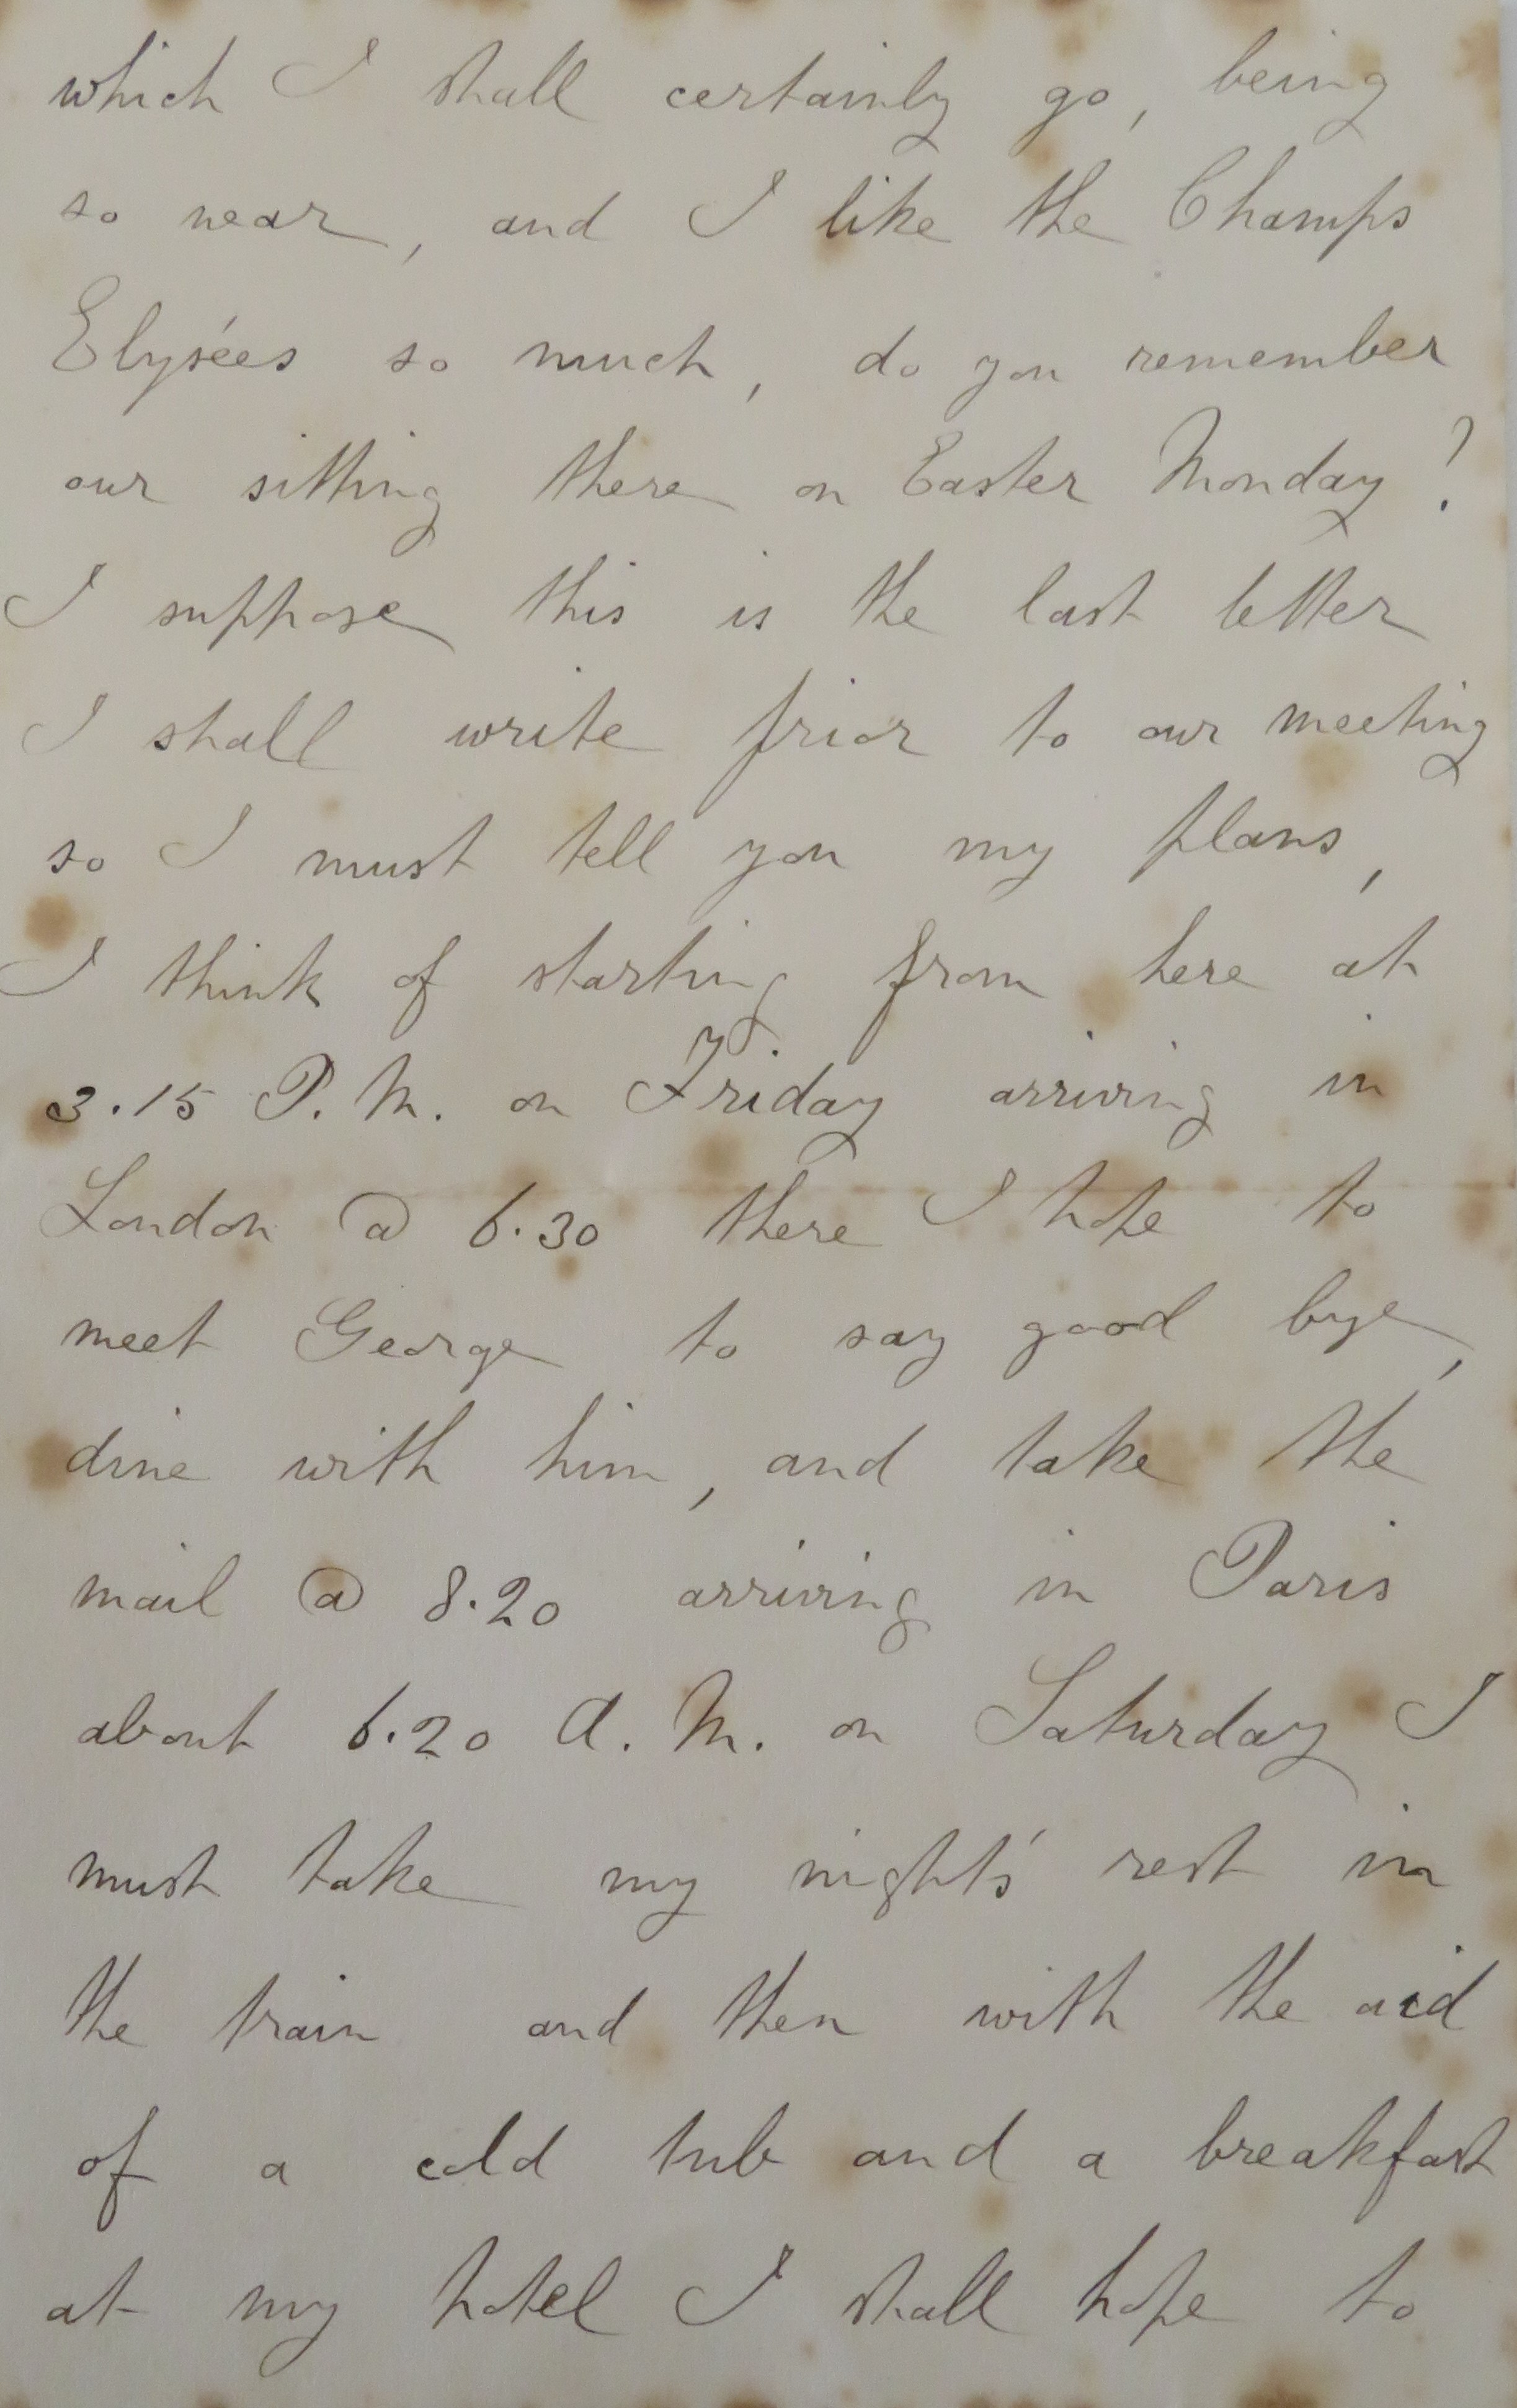 which I shall certainly go, being
so near, and I like the Champs
Elysées so much, do you remember
our sitting there on Easter Monday?
I suppose this is the last letter
I shall write prior to our meeting
so I must tell you my plans,
I think of starting from here at
3.15 P.M. on Friday arriving in
London @ 6.30 there I hope to
meet George to say good bye,
dine with him, and take the
mail @ 8.20 arriving in Paris
about 6.20 A.M. on Saturday I
must take my night's rest in
the train and then with the aid
of a cold tub and a breakfast
at my hotel I shall hope to